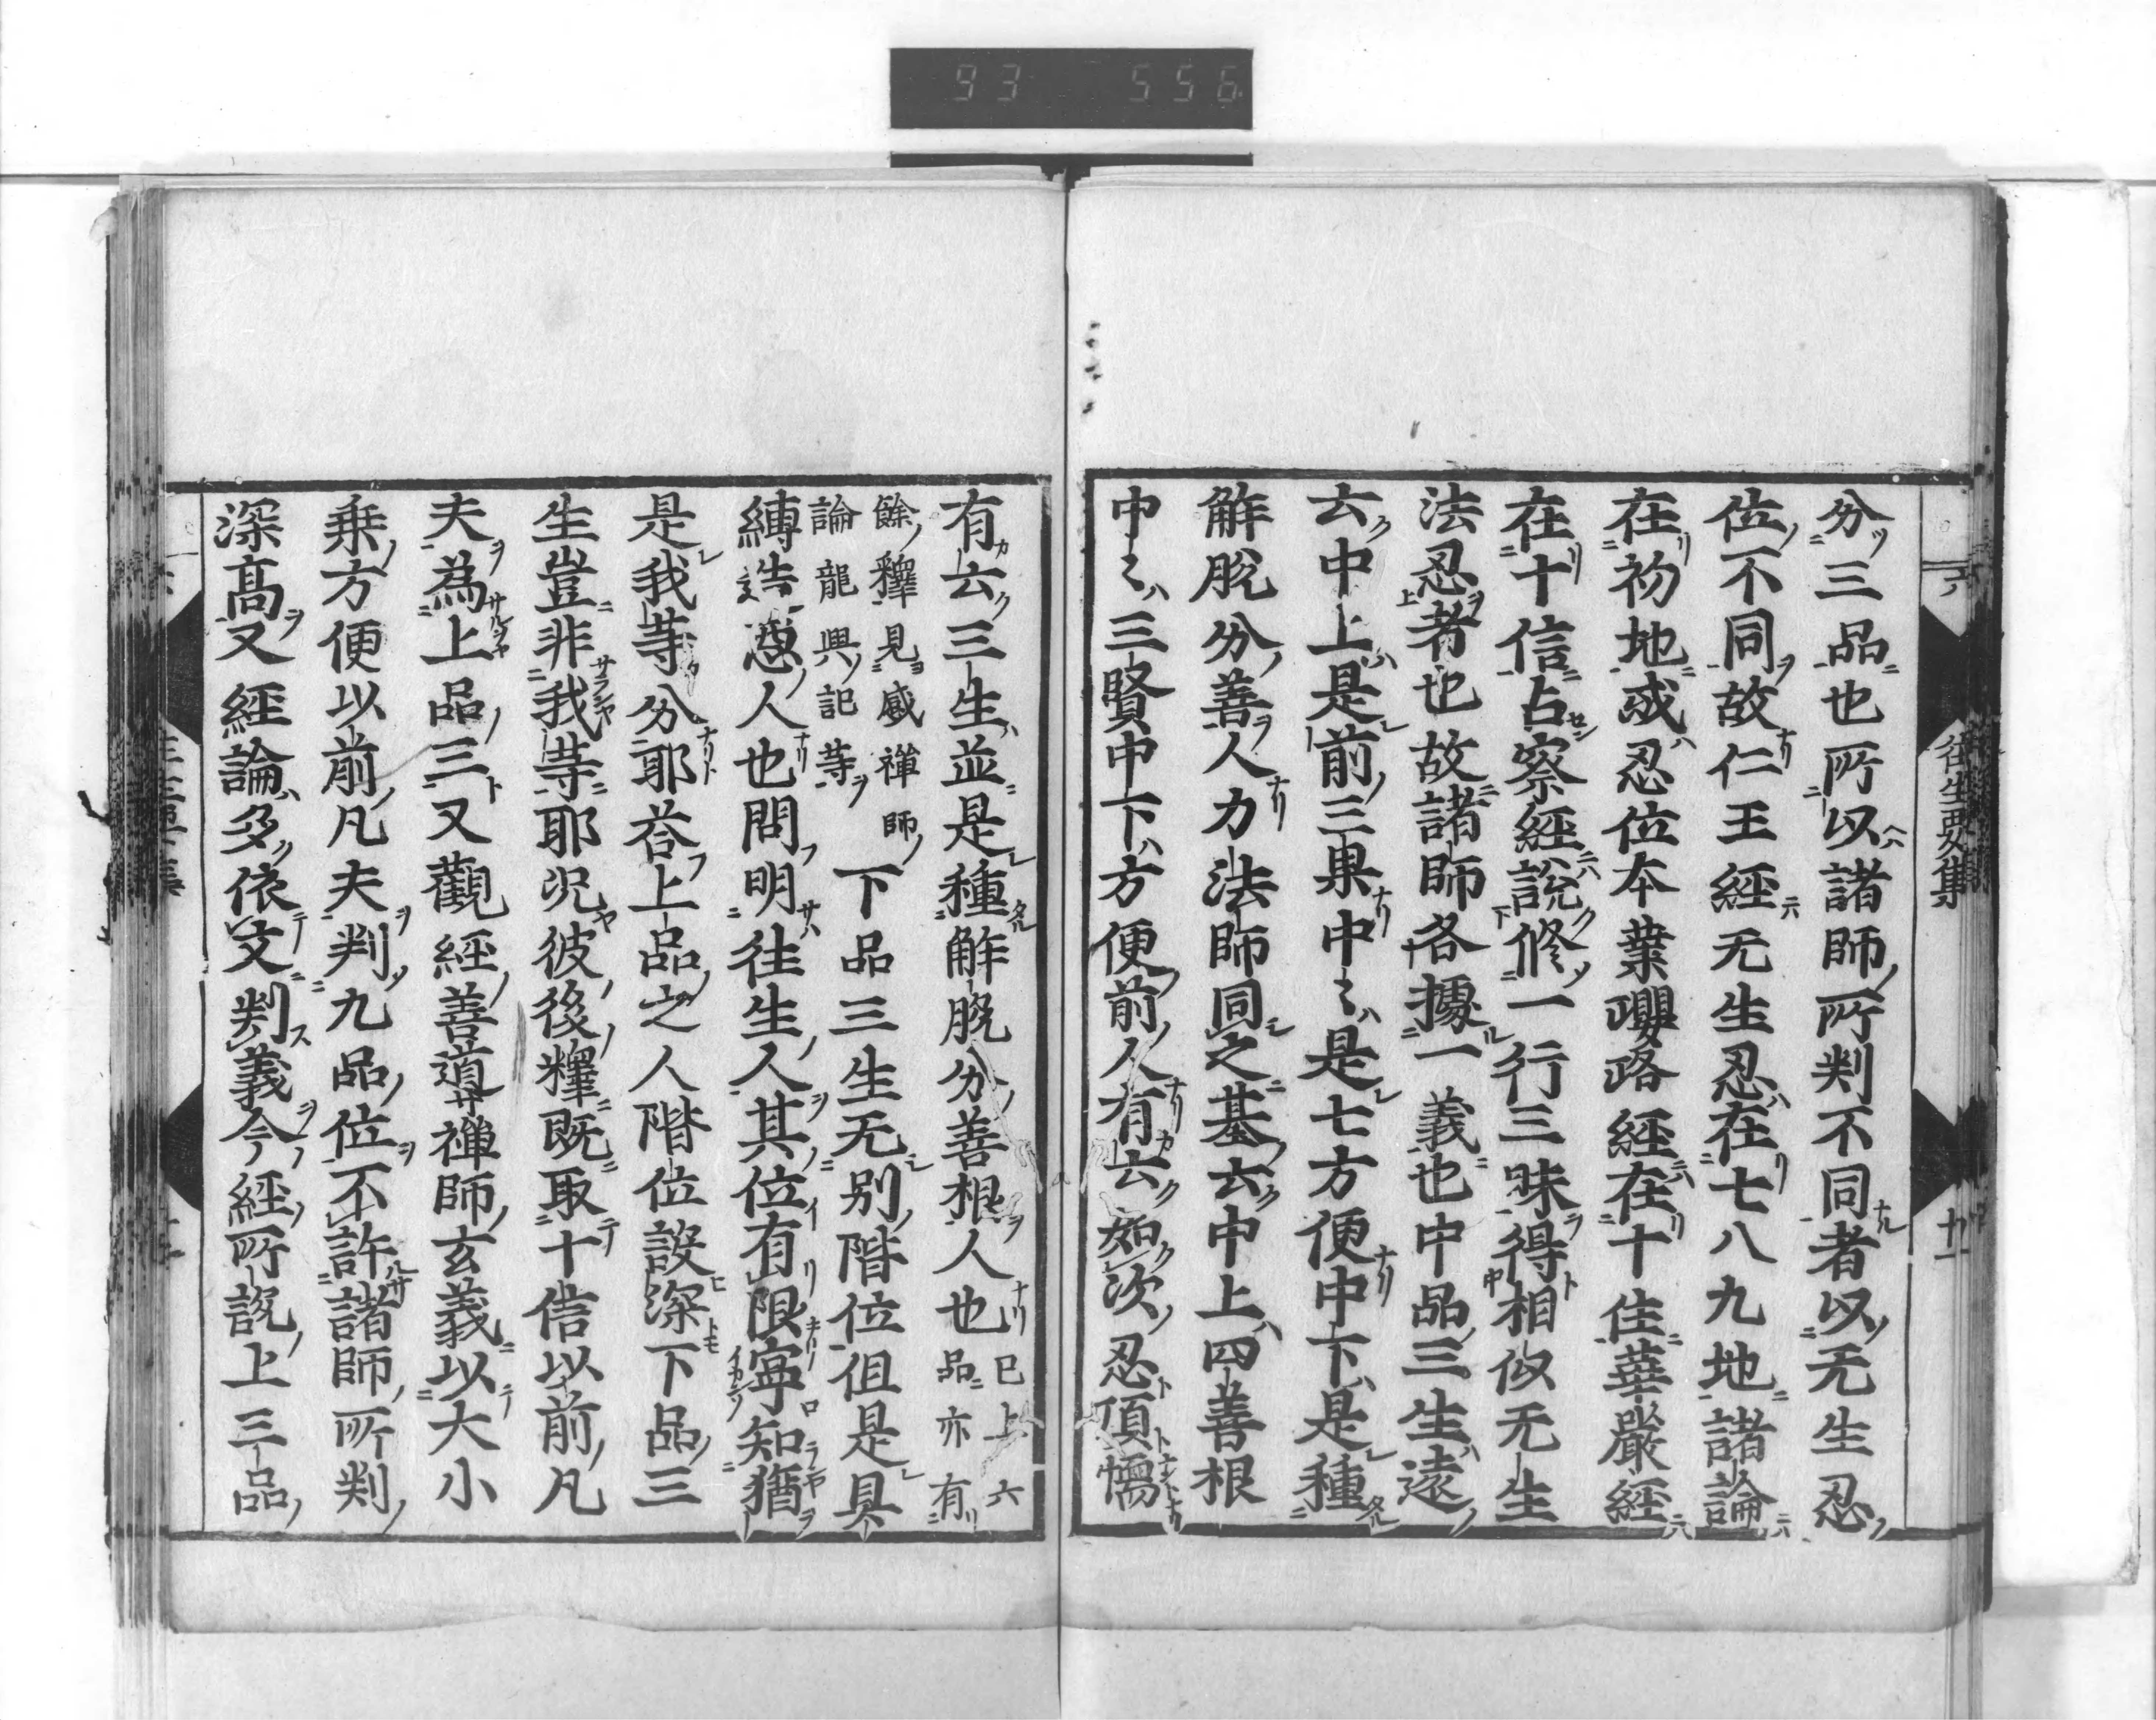 93 556
分三品也所以諸師所判不同者以无生忍
位不同故仁王經无生忍在七八九地諸論
在初地或忍位本業瓔珞經在十住華嚴經
在十信占察經說修一行三昧得相似无生
法忍者也故諸師各據一義也中品三生遠
云中上是前三果中〻是七方便中下是種
解脫分善人力法師同之基云中上四善根
中〻三賢中下方便前人有云如次忍頂懦
往生要集
六
十一
有云三生並是種解脫分善根人也已上六品亦有
餘釋見感禪師
論龍興記等下品三生无別階位但是具
縛造惡人也問明往生人其位有限寧知猶
是我等分耶荅上品之人階位設深下品三
生豈非我等耶况彼後釋既取十信以前凡
夫為上品三又觀經善導禪師玄義以大小
乗方便以前凡夫判九品位不許諸師所判
深高又經論多依文判義今經所說上三品